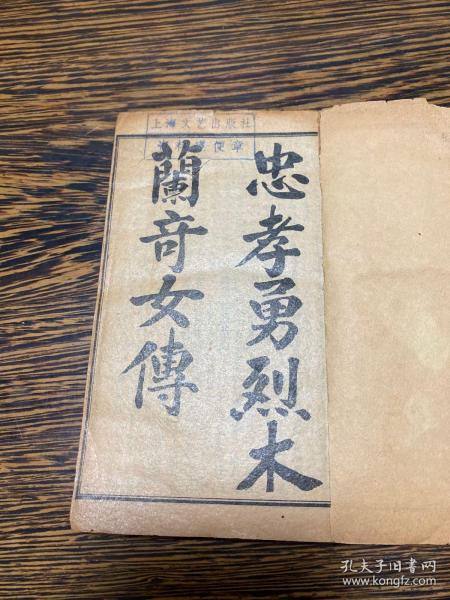 忠孝勇烈木
蘭奇女傳
上海文艺出版社
孔夫子旧书网
www.kongfz.com